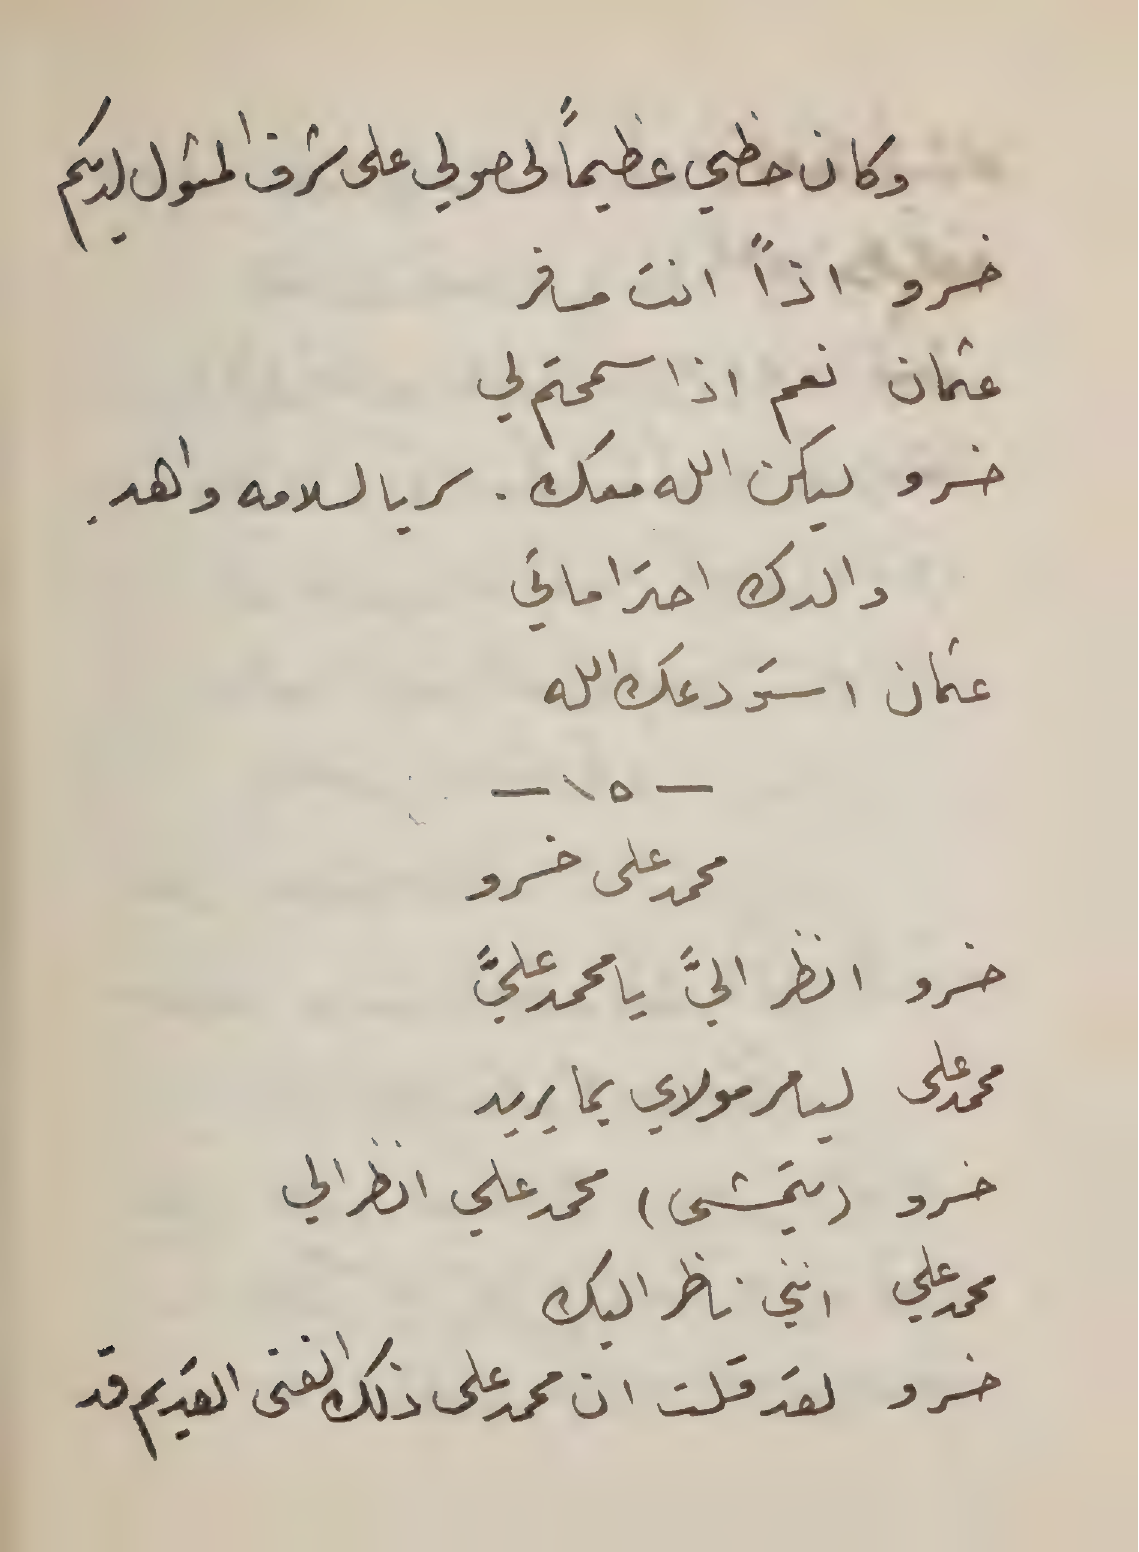 وكان حظي عظيماً لحصولي على شرف المثول لديكم
خسرو اذاً انت مسافر
عثمان نعم اذا سمحتم لي
خسرو ليكن الله معك . سر بالسلامه واهد
والدك احتراماتي
عثمان استودعك الله
— ١٥ —
محمد على خسرو
خسرو انظر اليَّ يا محمد عليَّ
محمد على ليامر مولاي بما يريد
خسرو (يتمشى) محمد علي انظر الي
محمد علي انني ناظر اليك
خسرو لقد قلت ان محمد على ذلك الفتى القديم قد